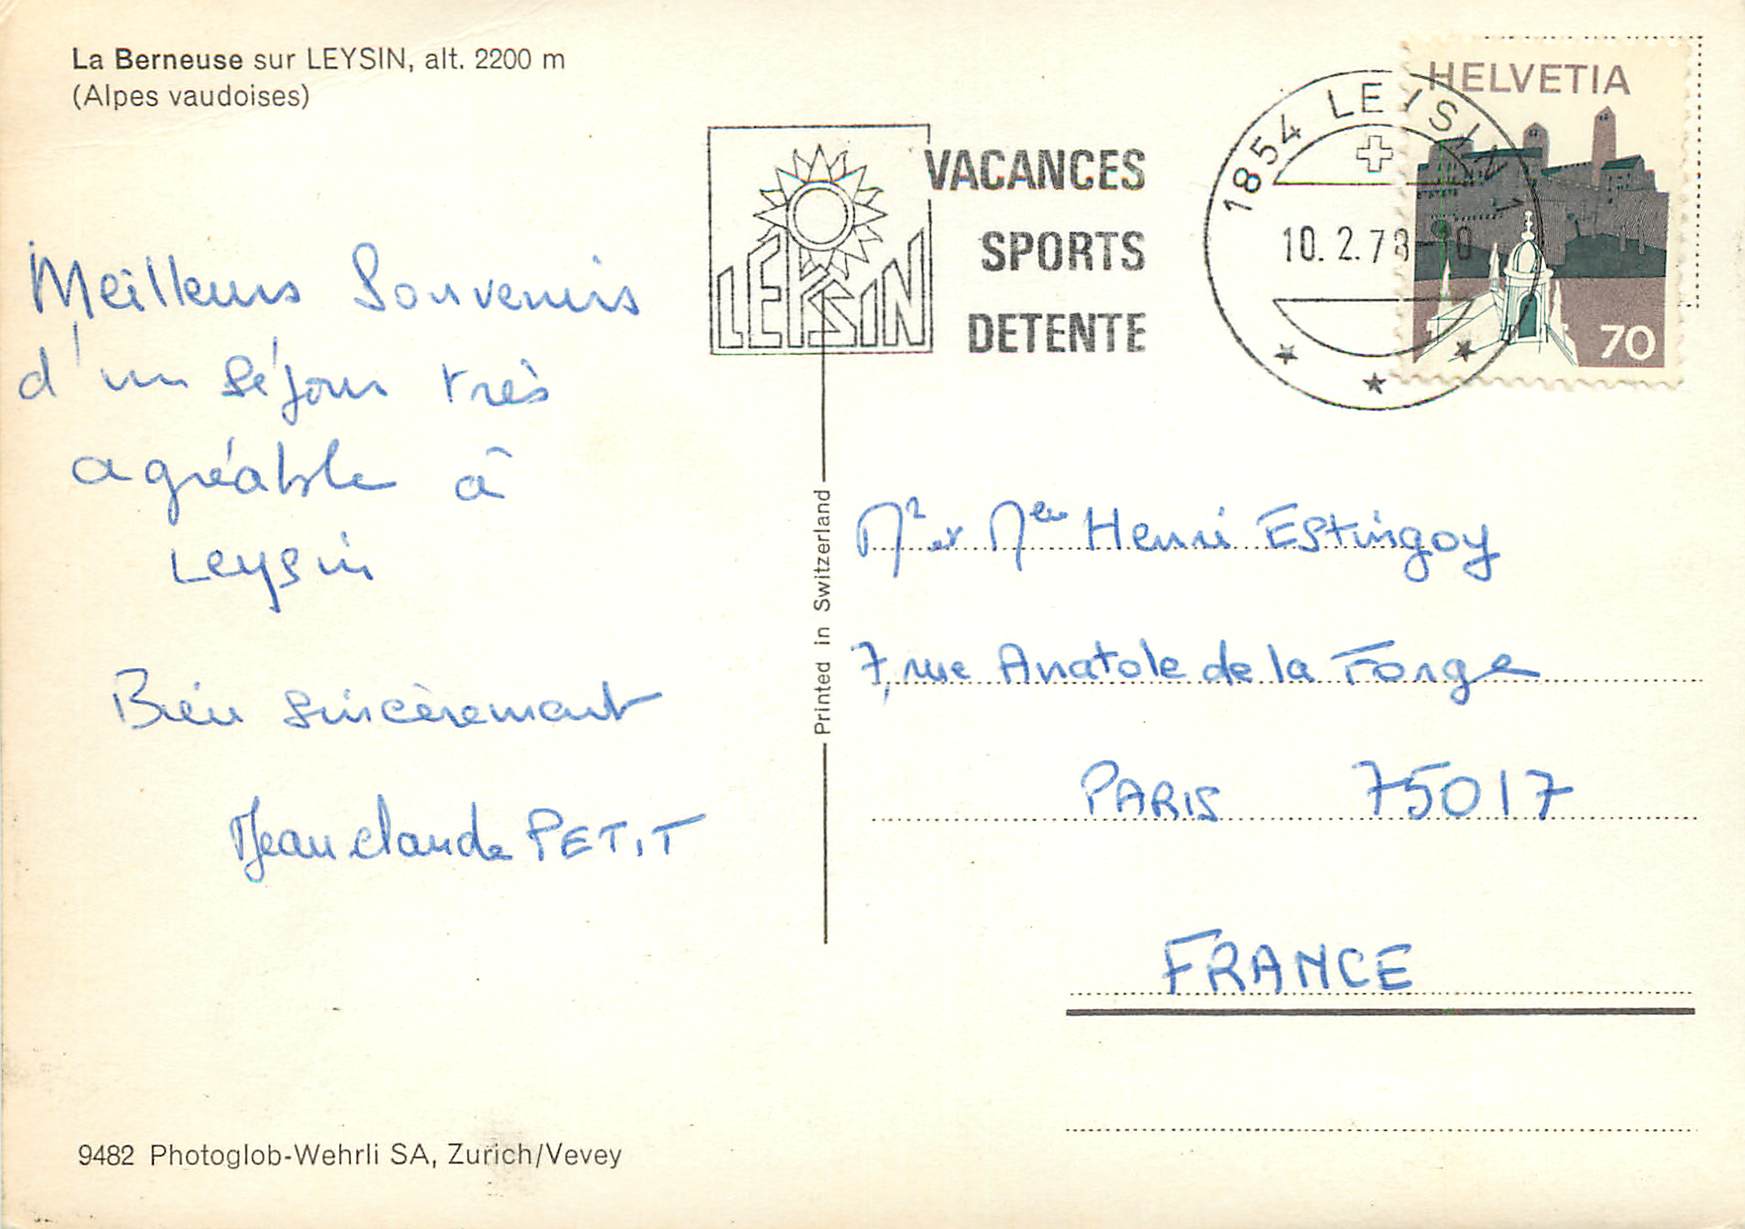 La Berneuse sur LEYSIN, alt. 2200 m
(Alpes vaudoises)
LEYSIN
VACANCES
SPORTS
DETENTE
1854 LEYSIN 1
10.2.78-10
HELVETIA
70
Meilleurs Souvenirs
d'un séjour très
agréable à
Leysin
Bien sincèrement
Jean claude PETIT
Printed in Switzerland
Mr et Me Henri Estingoy
7, rue Anatole de la Forge
PARIS 75017
FRANCE
9482 Photoglob-Wehrli SA, Zurich/Vevey